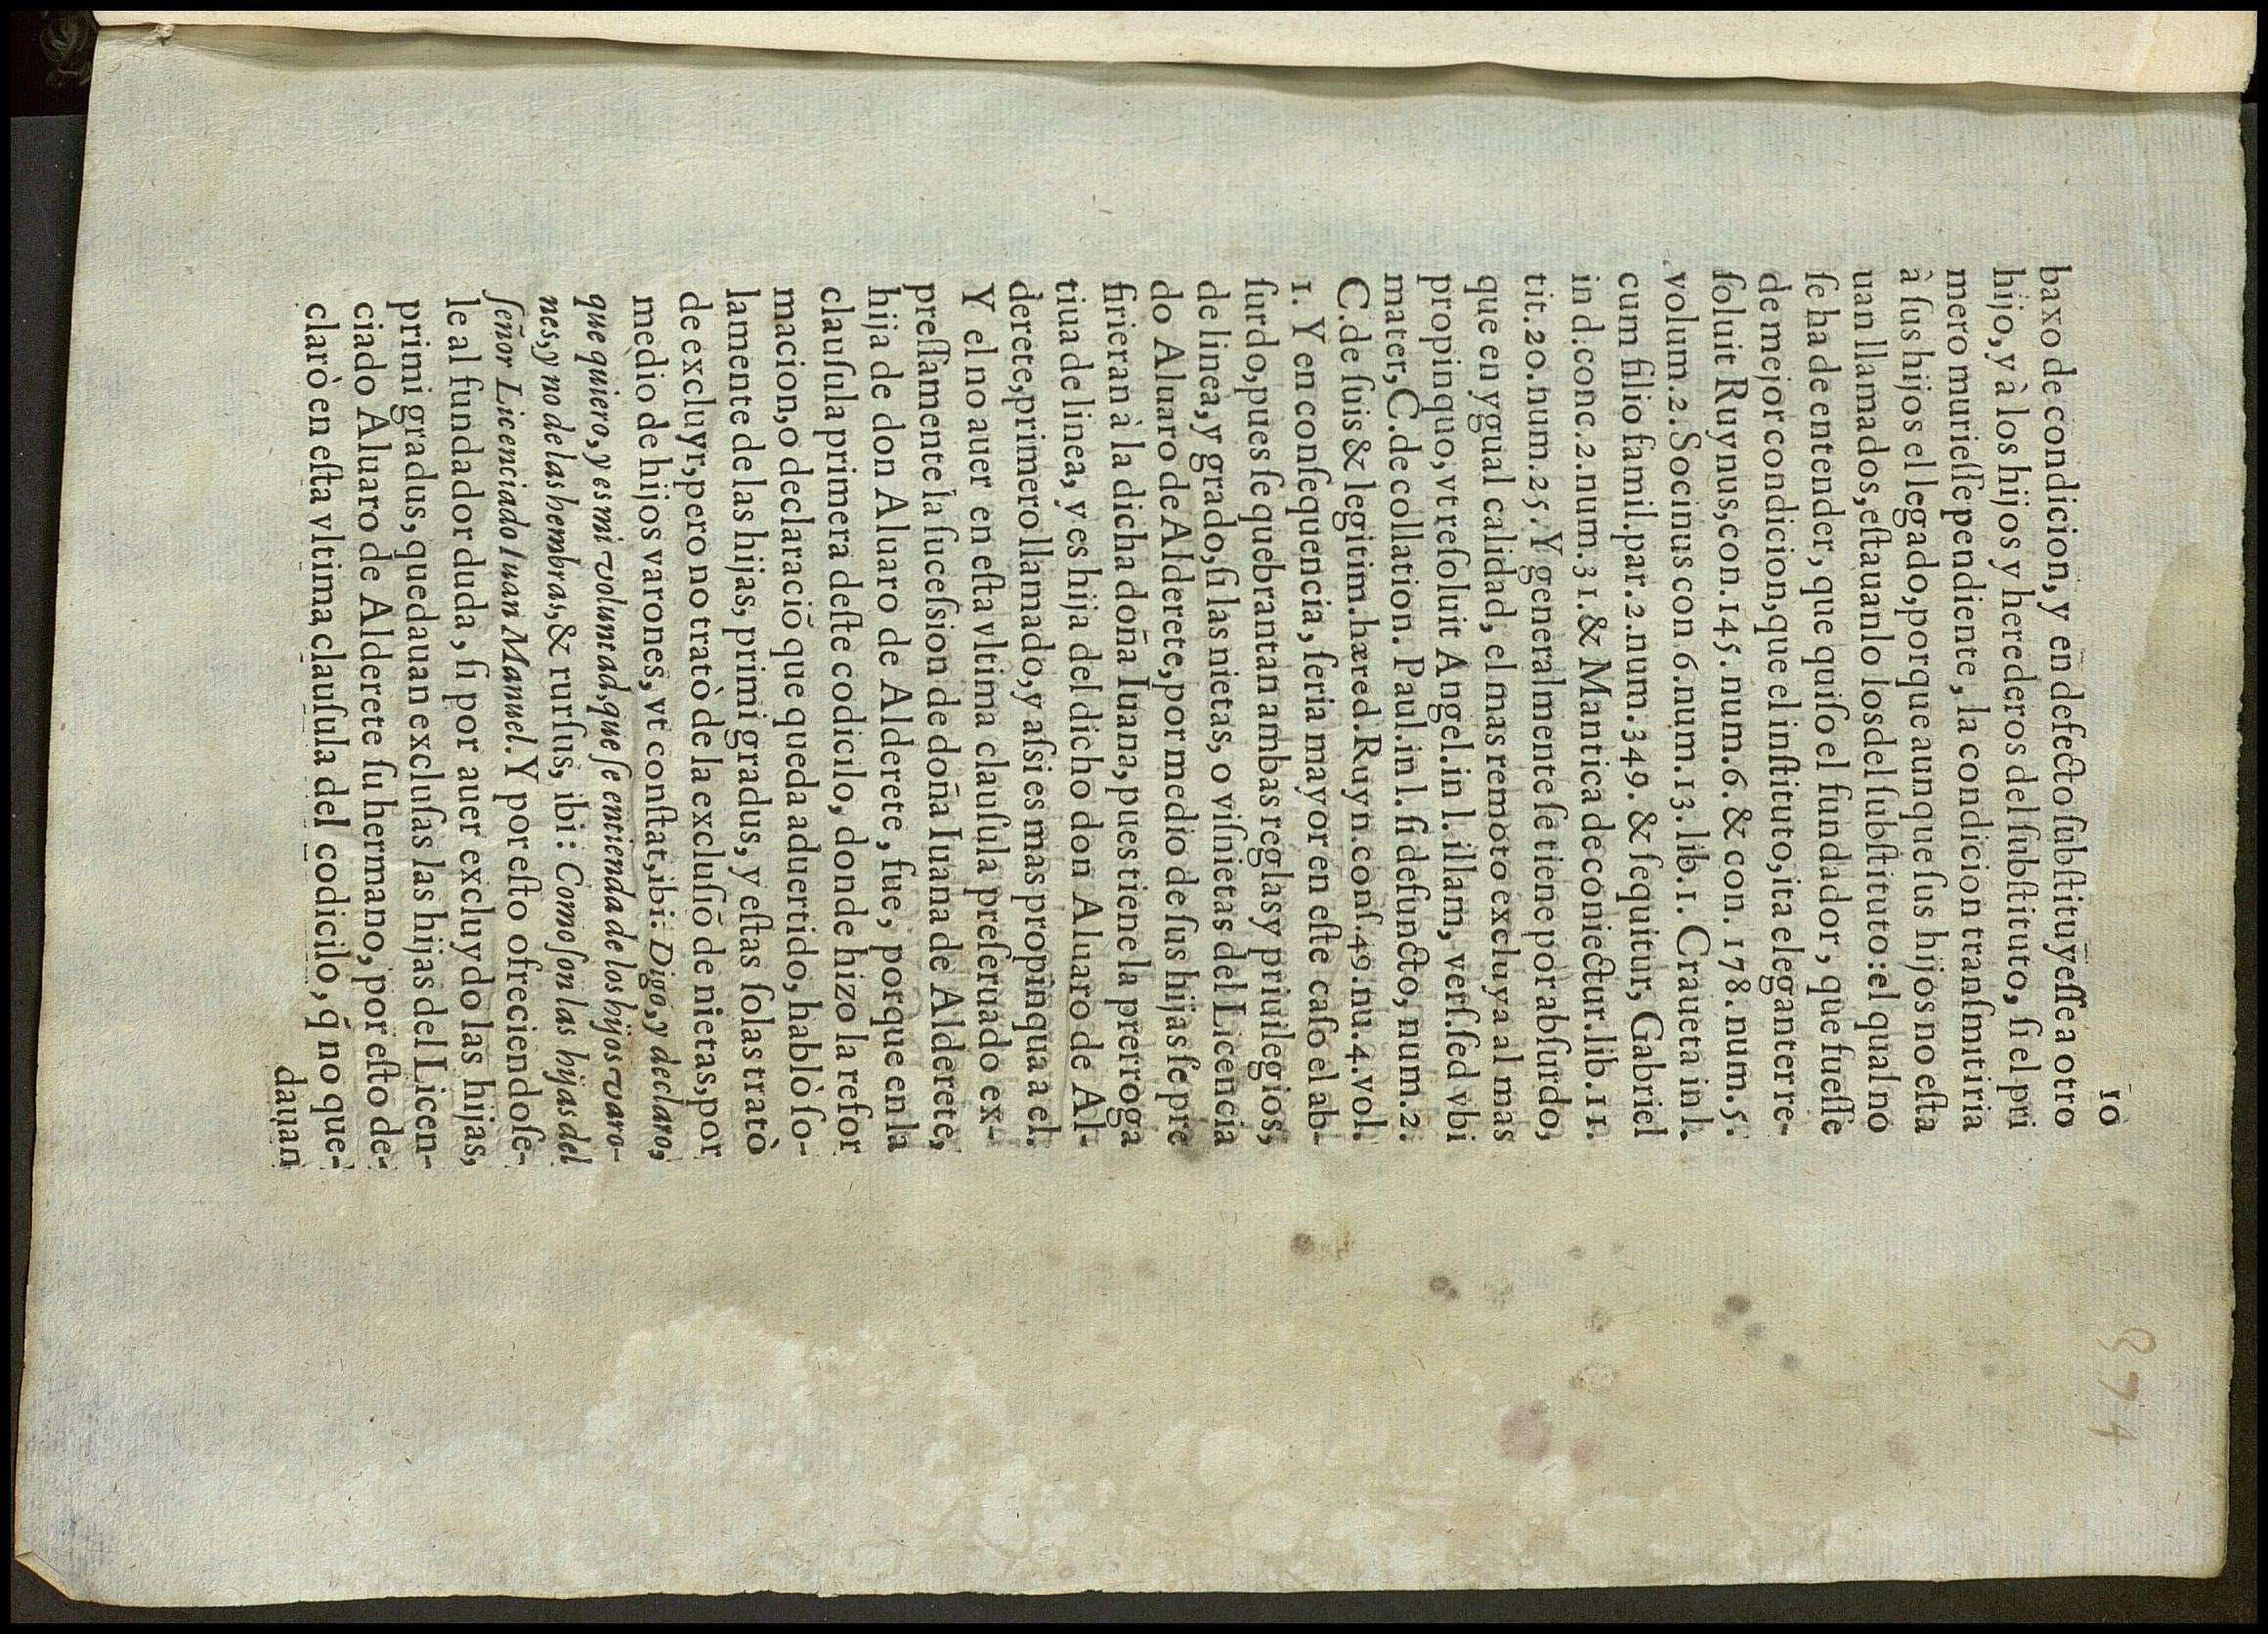 10
874
baxo de condicion, y en defecto ſubſtituyeſſe a otro
hijo, y à los hijos y herederos del ſubſtituto, ſi el pri
mero murieſſe pendiente, la condicion tranſmitiria
à ſus hijos el legado, porque aunque ſus hijos no eſta
uan llamados, eſtauanlo los del ſubſtituto: el qual no
ſe ha de entender, que quiſo el fundador, que fueſſe
de mejor condicion, que el inſtituto, ita eleganter re-
ſoluit Ruynus, con. 145. num. 6. & con. 178. num. 5.
volum. 2. Socinus con 6. num. 13. lib. 1. Craueta in l.
cum filio famil. par. 2. num. 349. & ſequitur, Gabriel
in d. conc. 2. num. 31. & Mantica de coniectur. lib. 11.
tit. 20. num. 25. Y generalmente ſe tiene por abſurdo,
que en ygual calidad, el mas remoto excluya al mas
propinquo, vt reſoluit Angel. in l. illam, verſ. ſed vbi
mater, C. de collation. Paul. in l. ſi defuncto, num. 2.
C. de ſuis & legitim. hæred. Ruyn. conſ. 49. nu. 4. vol.
1. Y en conſequencia, ſeria mayor en eſte caſo el ab-
ſurdo, pues ſe quebrantan ambas reglas y priuilegios,
de linea, y grado, ſi las nietas, o viſnietas del Licencia
do Aluaro de Alderete, por medio de ſus hijas ſe pre
firieran à la dicha doña Iuana, pues tiene la prerroga
tiua de linea, y es hija del dicho don Aluaro de Al-
derete, primero llamado, y aſsi es mas propinqua a el.
Y el no auer en eſta vltima clauſula preſeruado ex-
preſſamente la ſuceſsion de doña Iuana de Alderete,
hija de don Aluaro de Alderete, fue, porque en la
clauſula primera deſte codicilo, donde hizo la refor
macion, o declaraciõ que queda aduertido, hablò ſo-
lamente de las hijas, primi gradus, y eſtas ſolas tratò
de excluyr, pero no tratò de la excluſiõ de nietas, por
medio de hijos varones, vt conſtat, ibi: Digo, y declaro,
que quiero, y es mi voluntad, que ſe entienda de los hijos varo-
nes, y no de las hembras, & rurſus, ibi: Como ſon las hijas del
ſeñor Licenciado Iuan Manuel. Y por eſto ofreciendoſe-
le al fundador duda, ſi por auer excluydo las hijas,
primi gradus, quedauan excluſas las hijas del Licen-
ciado Aluaro de Alderete ſu hermano, por eſto de-
clarò en eſta vltima clauſula del codicilo, q̃ no que-
dauan